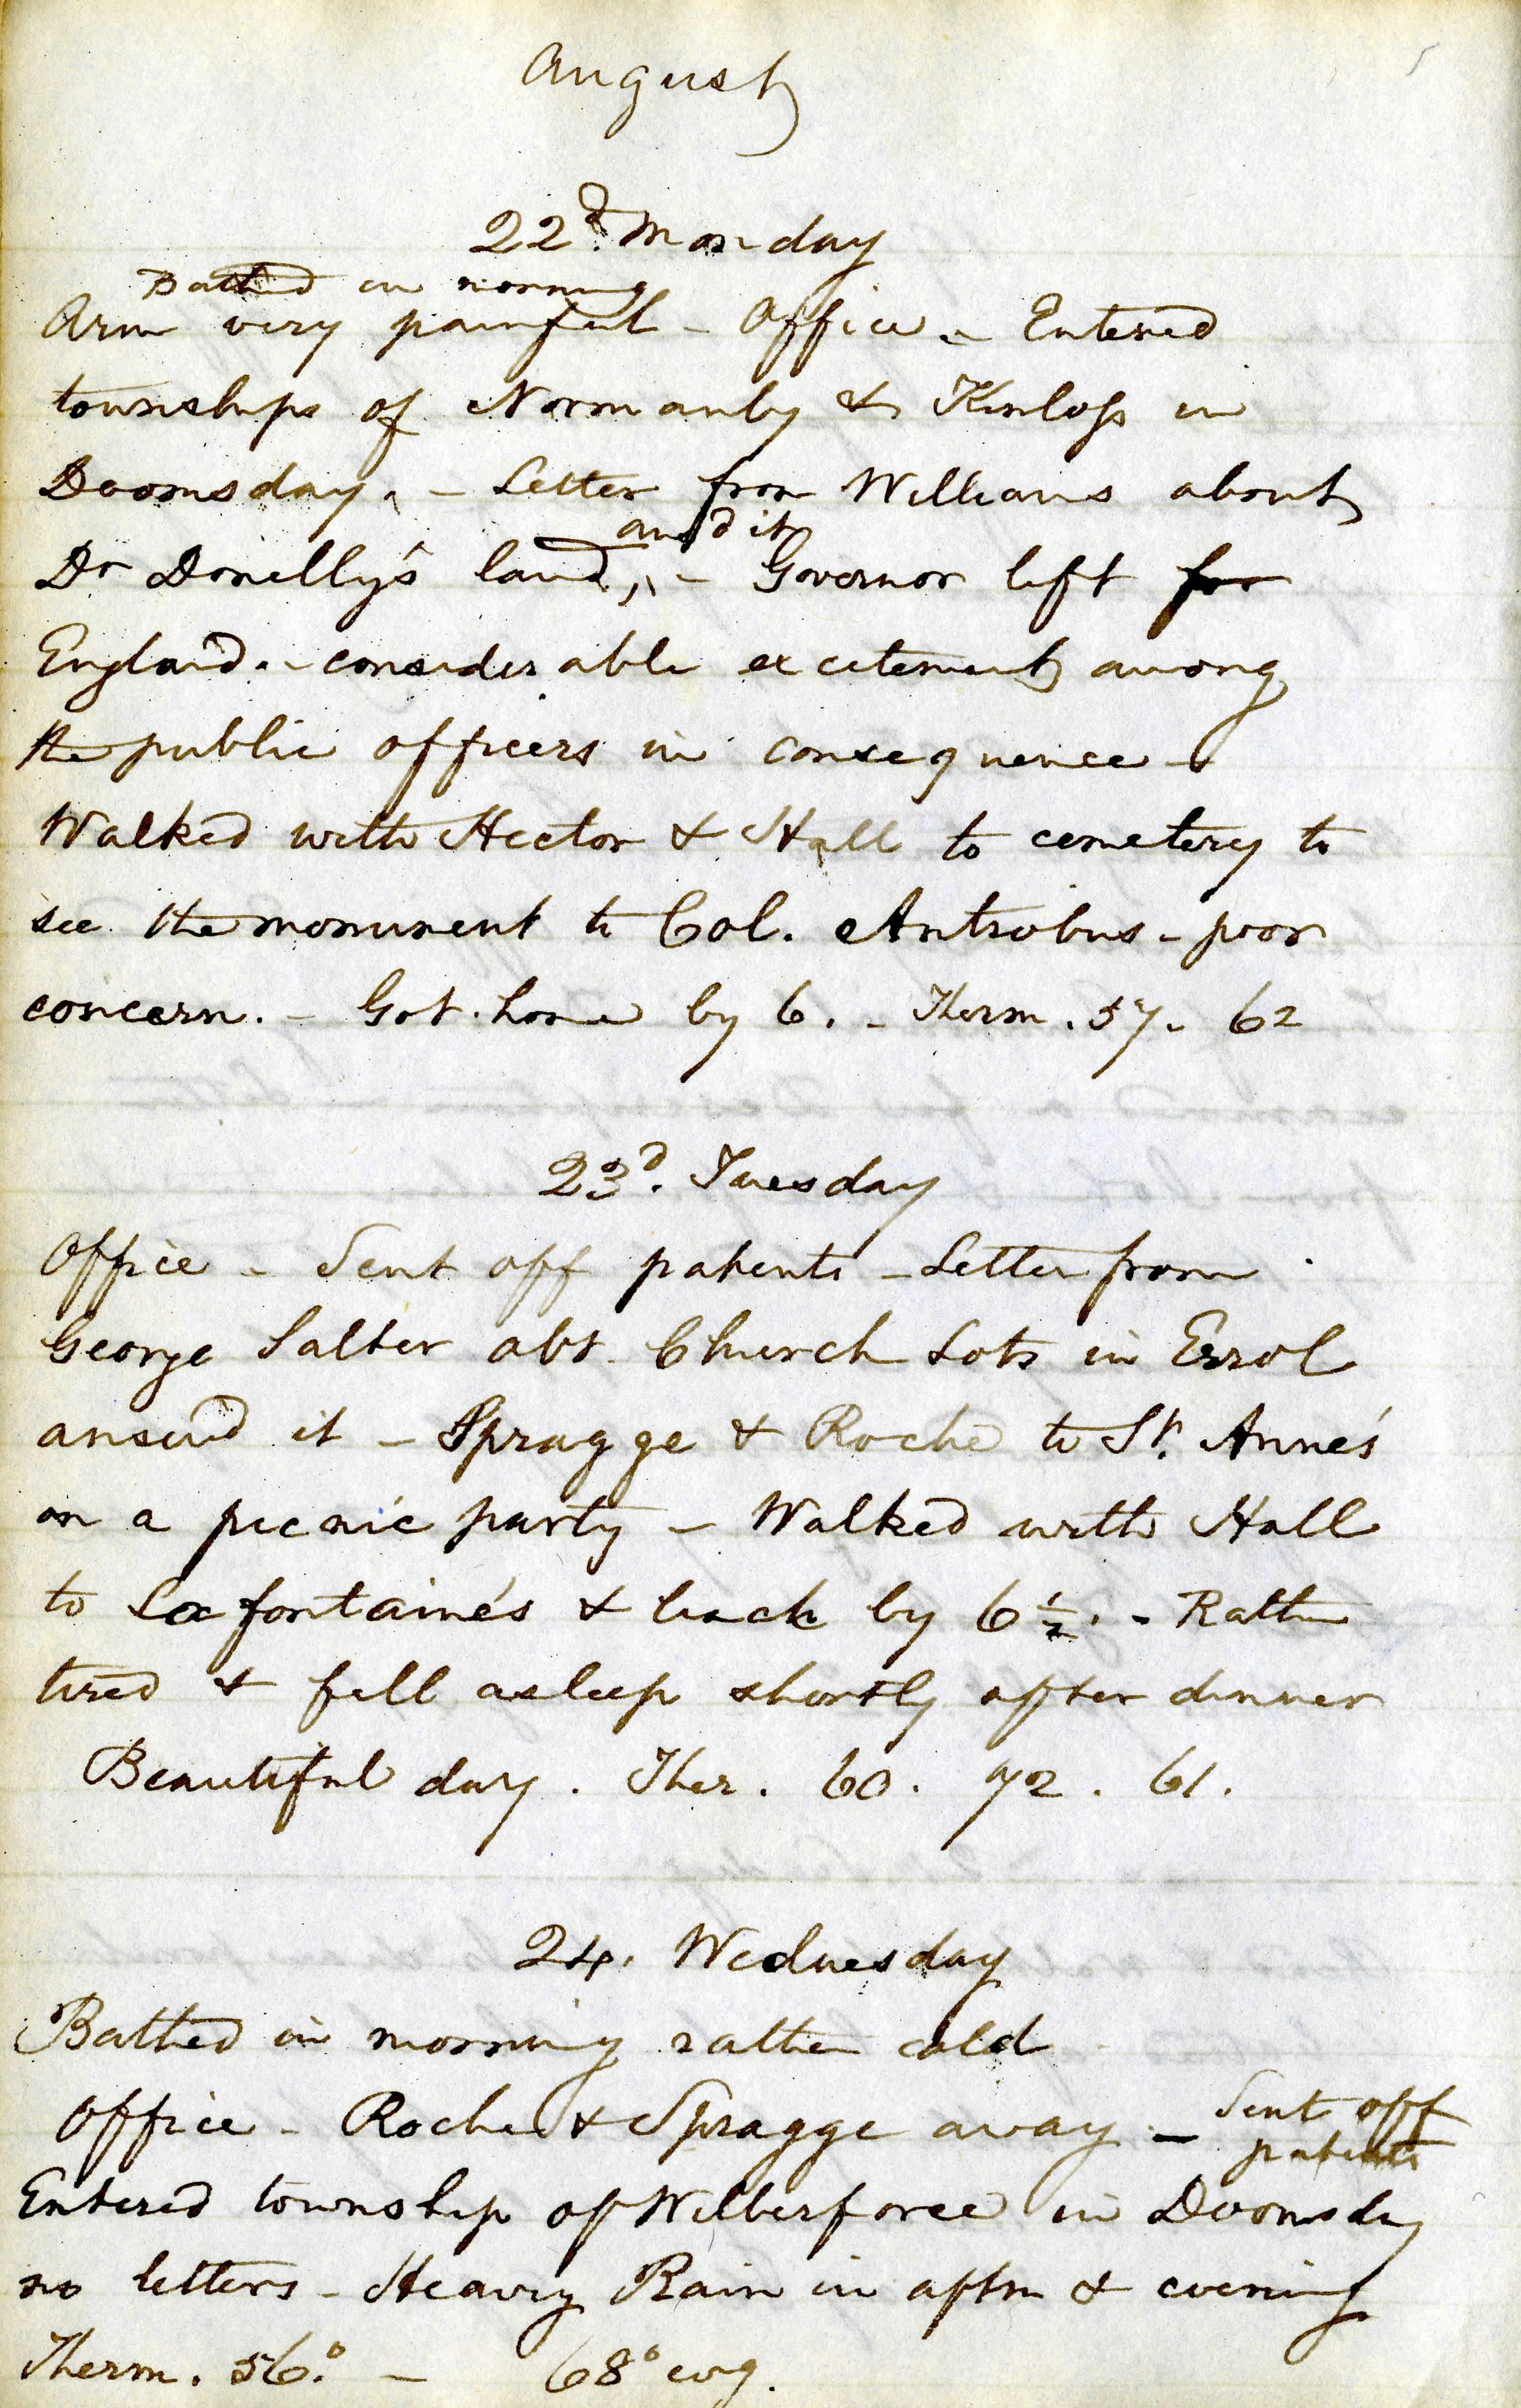 August
22d. Monday
Bathed in morning
Arm very painful - Office. - Entered
townships of Normanby & Kinloss in
Doomsday. - Letter from Williams about
ansd it
Dr Donelly's land, - Governor left for
England. - considerable excitement among
the public officers in consequence -
Walked with Hector & Hall to cemetery to
see the monument to Col. Antrobus - poor
concern. - Got home by 6. - Therm. 57. 62
23d. Tuesday
Office - Sent off patents - Letter from
George Salter abt. Church Lots in Errol
answd it - Spragge & Roche to St. Anne's
on a picnic party - Walked with Hall
to Lafontaine's & back by 6 1/2. - Rather
tired & fell asleep shortly after dinner
Beautiful day. Ther. 60. 72. 61.
24. Wednesday
Bathed in morning rather cold
Office - Roche & Spragge away - Sent off
patents
Entered township of Wilberforce in Doomsday
no letters - Heavy Rain in aftn & evening
Therm. 56.° - 68° evg.